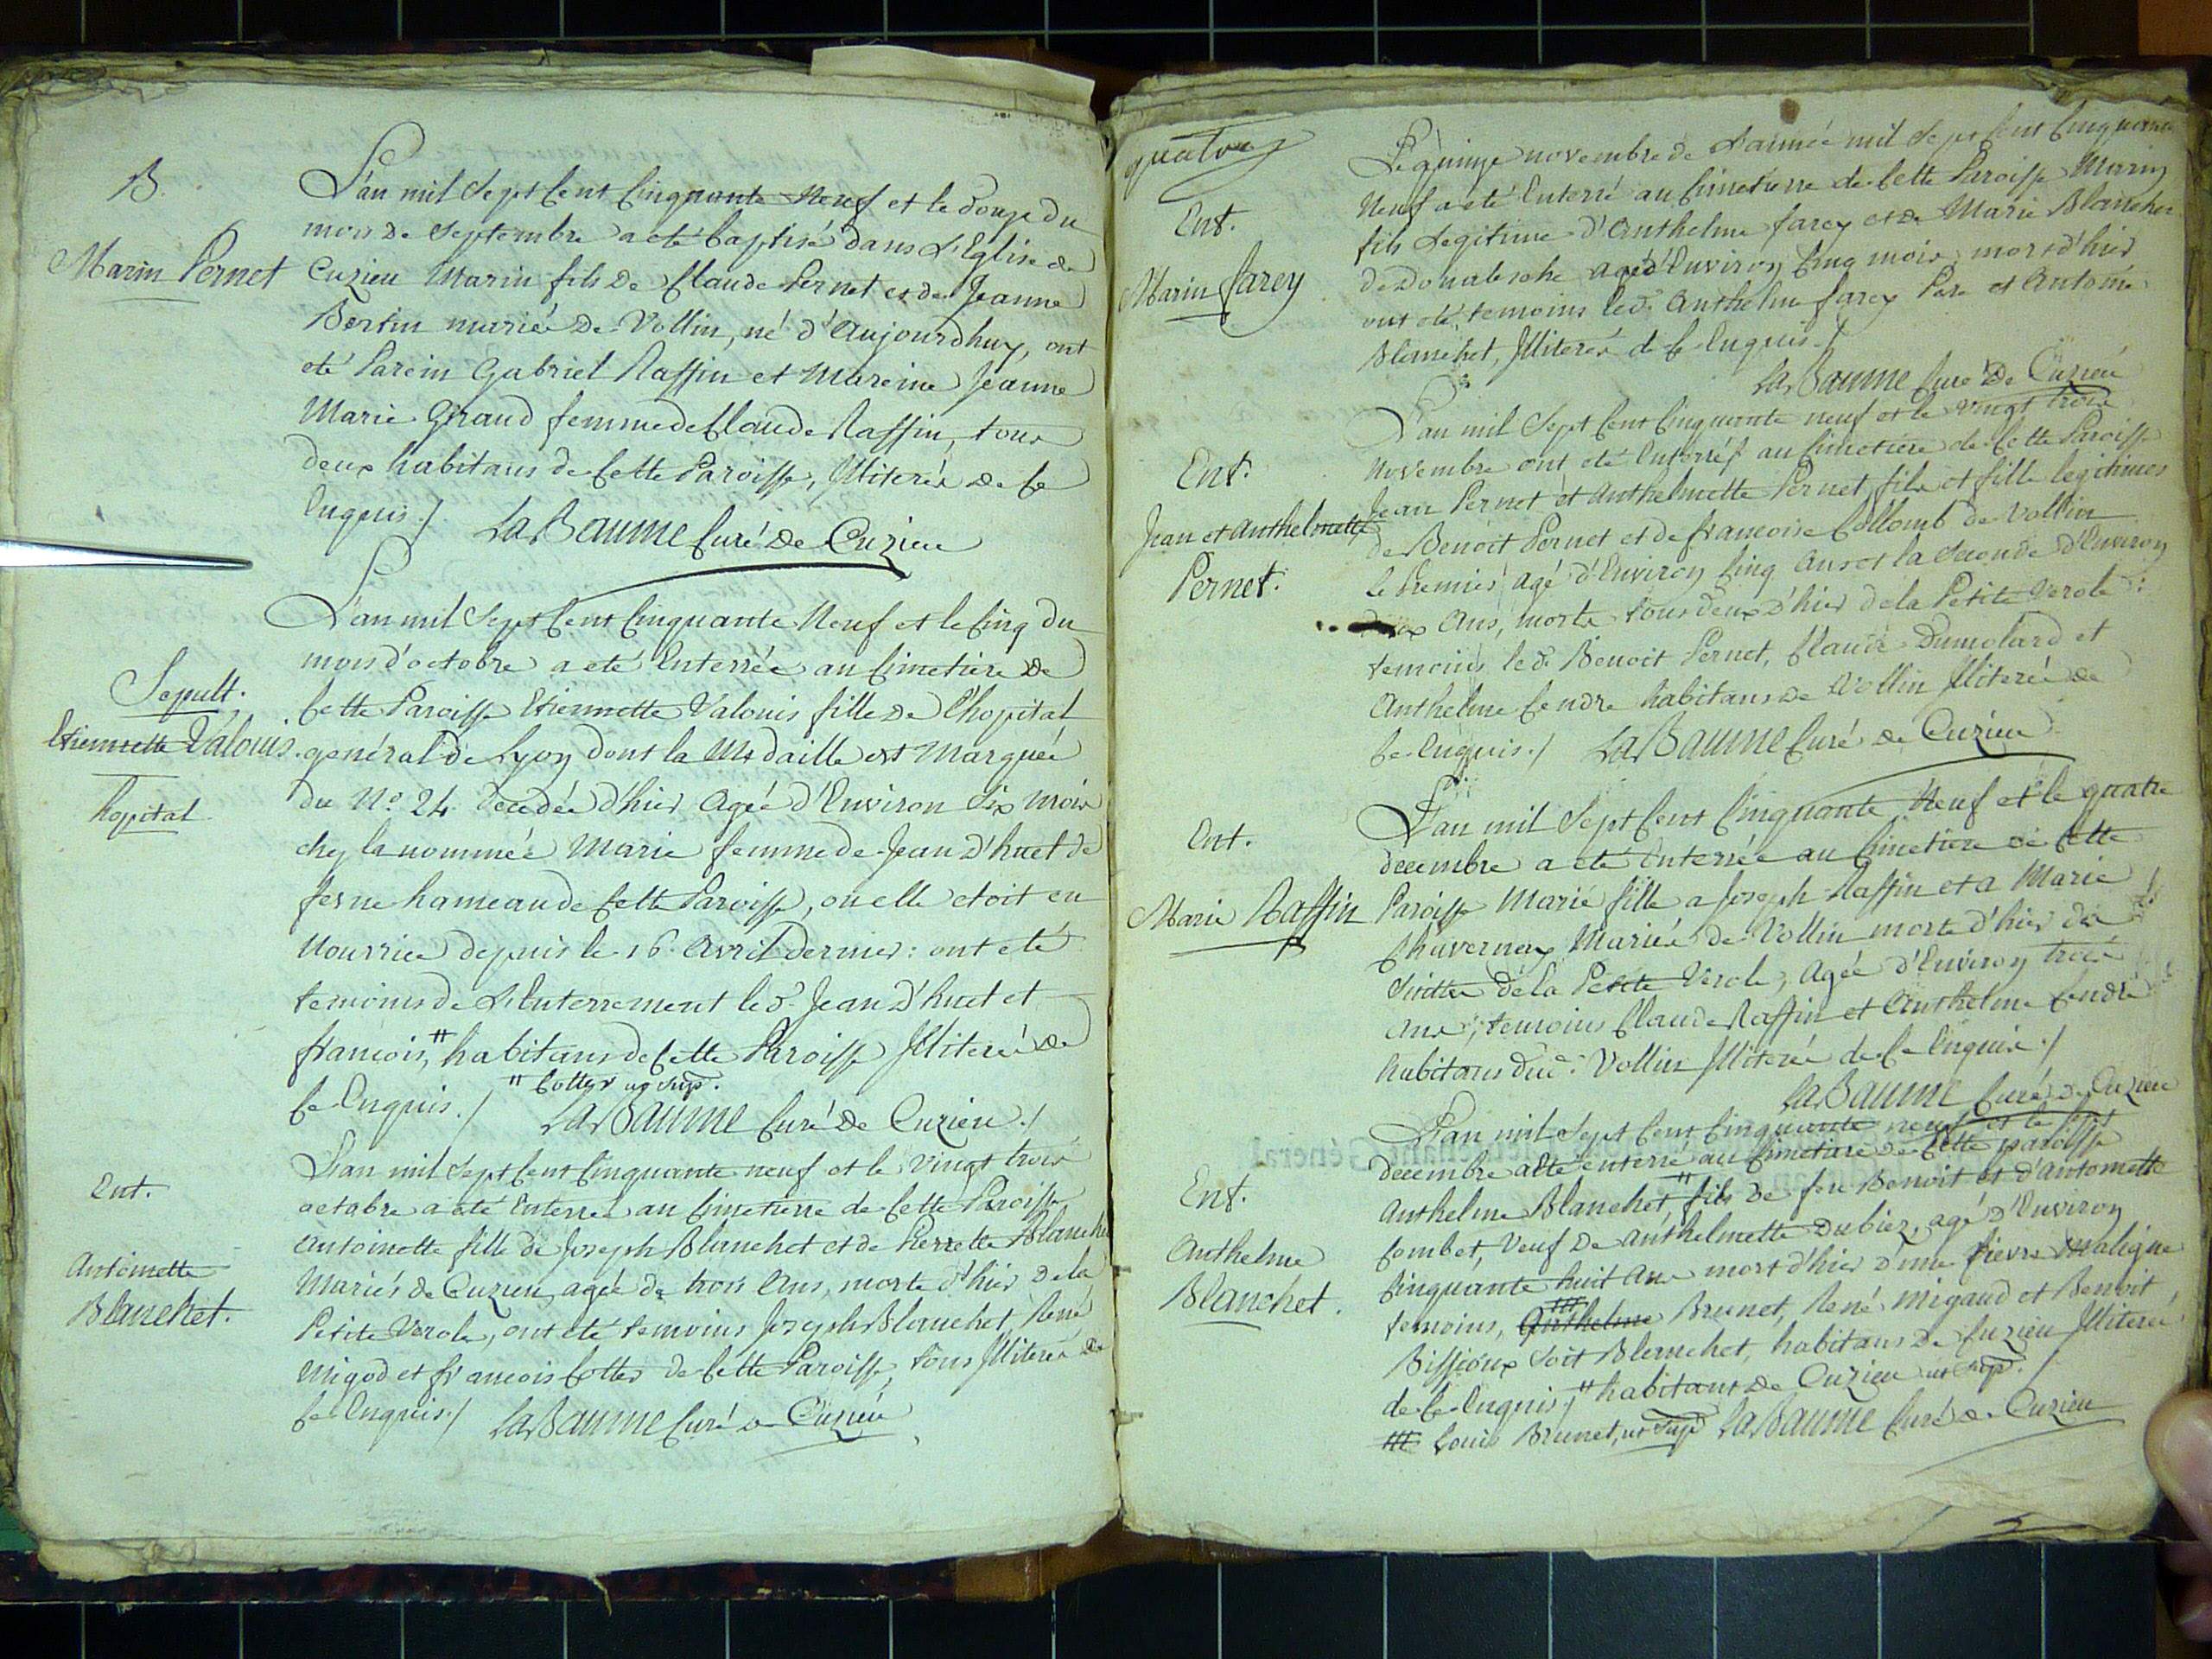 B.
Marin Pernet
L'an mil sept cent cinquante neuf et le douze du
mois de septembre a eté baptisé dans L'Eglise de
Cuzieu Marin fils de Claude Pernet et de Jeanne
Bertin mariés de Vollin, né d'aujourdhuy, ont
eté Parein Gabriel Raffin et Mareine Jeanne
Marie Giraud femme de Claude Raffin, tous
deux habitans de cette Paroisse, Illiterés de ce
Enquis./
La Baume Curé de Cuzieu
Sepult.
Etiennette Valouis.
hopital
L'an mil sept cent cinquante neuf et le cinq du
mois d'octobre a eté Enterrée au cimetiere de
cette Paroisse Etiennette Valouis fille de l'hopital
genéral de Lyon dont la Medaille est Marquée
du N° 24. decedée d'hier agée d'Environ six mois
chez la nommée Marie femme de Jean d'huet de
ferne hameau de cette Paroisse, ou elle etoit en
Nourrice depuis le 16. avril dernier: ont eté
temoins de L'Enterrement le d. Jean d'huet et
francois, # habitans de cette Paroisse Illiterés de
ce Enquis./ # Cottez ut sup.
La Baume Curé de Cuzieu./
Ent.
Antoinette
Blanchet.
L'an mil sept cent cinquante neuf et le vingt trois
octobre a eté Enterrée au cimetierre de cette Paroisse
Antoinette fille de Joseph Blanchet et de Pierrette Blanchet
Mariés de Cuzieu, agée de trois ans, morte d'hier de la
Petite Verole, ont eté temoins Joseph Blanchet, René
Migod et francois Cottez de cette Paroisse, tous Illiterés de
ce Enquis./ La Baume Curé de Cuzieu
quatre
Ent.
Marin farcy
Le quinze novembre de L'année mil sept cent cinquante
Neuf a eté Enterré au cimetierre de cette Paroisse Marin
fils Legitime d'Anthelme farcy et de Marie Blanchet
de agé d'Environ cinq mois mort d'hier
ont eté temoins le d. Anthelme farcy Pere et Antoine
Blanchet, Illiterés de ce Enquis./
La Baume Curé de Cuzieu
Ent.
Jean et Anthelmette
Pernet.
L'an mil sept cent cinquante neuf et le vingt trois
Novembre ont eté Enterrés au cimetiere de cette Paroisse
Jean Pernet et Anthelmette Pernet, fils et fille legitimes
de Benoit Pernet et de francoise Collomb de Vollin
Le Premier agé d'Environ cinq ans et la seconde d'Environ
deux ans, morts tous deux d'hier de la Petite Verole:
temoins le d. Benoit Pernet, Claude Dumolard et
Anthelme Cendre habitans de Vollin Illiterés de
ce Enquis./ La Baume Curé de Cuzieu
Ent.
Marie Raffin
L'an mil sept cent cinquante neuf et le quatre
decembre a eté Enterrée au cimetiere de cette
Paroisse Marie fille a Joseph Raffin et a Marie
Chaverney Mariés de Vollin morte d'hier des
suittes de la Petite Verole, agée d'Environ trois
ans; temoins Claude Raffin et Anthelme Cendre
habitans dud. Vollin Illiterés de ce Enquis./
La Baume Curé de Cuzieu
Ent.
Anthelme
Blanchet.
L'an mil sept cent cinquante neuf et le sept
decembre a eté enterré au cimetiere de cette paroisse
Anthelme Blanchet, # fils de feu Benoit et d'Antoinette
Combet, Veuf de Anthelmette Dubiez, agé d'Environ
cinquante huit ans mort d'hier d'une fievre maligne
temoins, Anthelme # Brunet, René Migaud et Benoit
Bissioux soit Blanchet, habitans de Cuzieu Illiterés
de ce Enquis, # habitant de Cuzieu ut sup./
# Louis Brunet, ut sup. La Baume Curé de Cuzieu